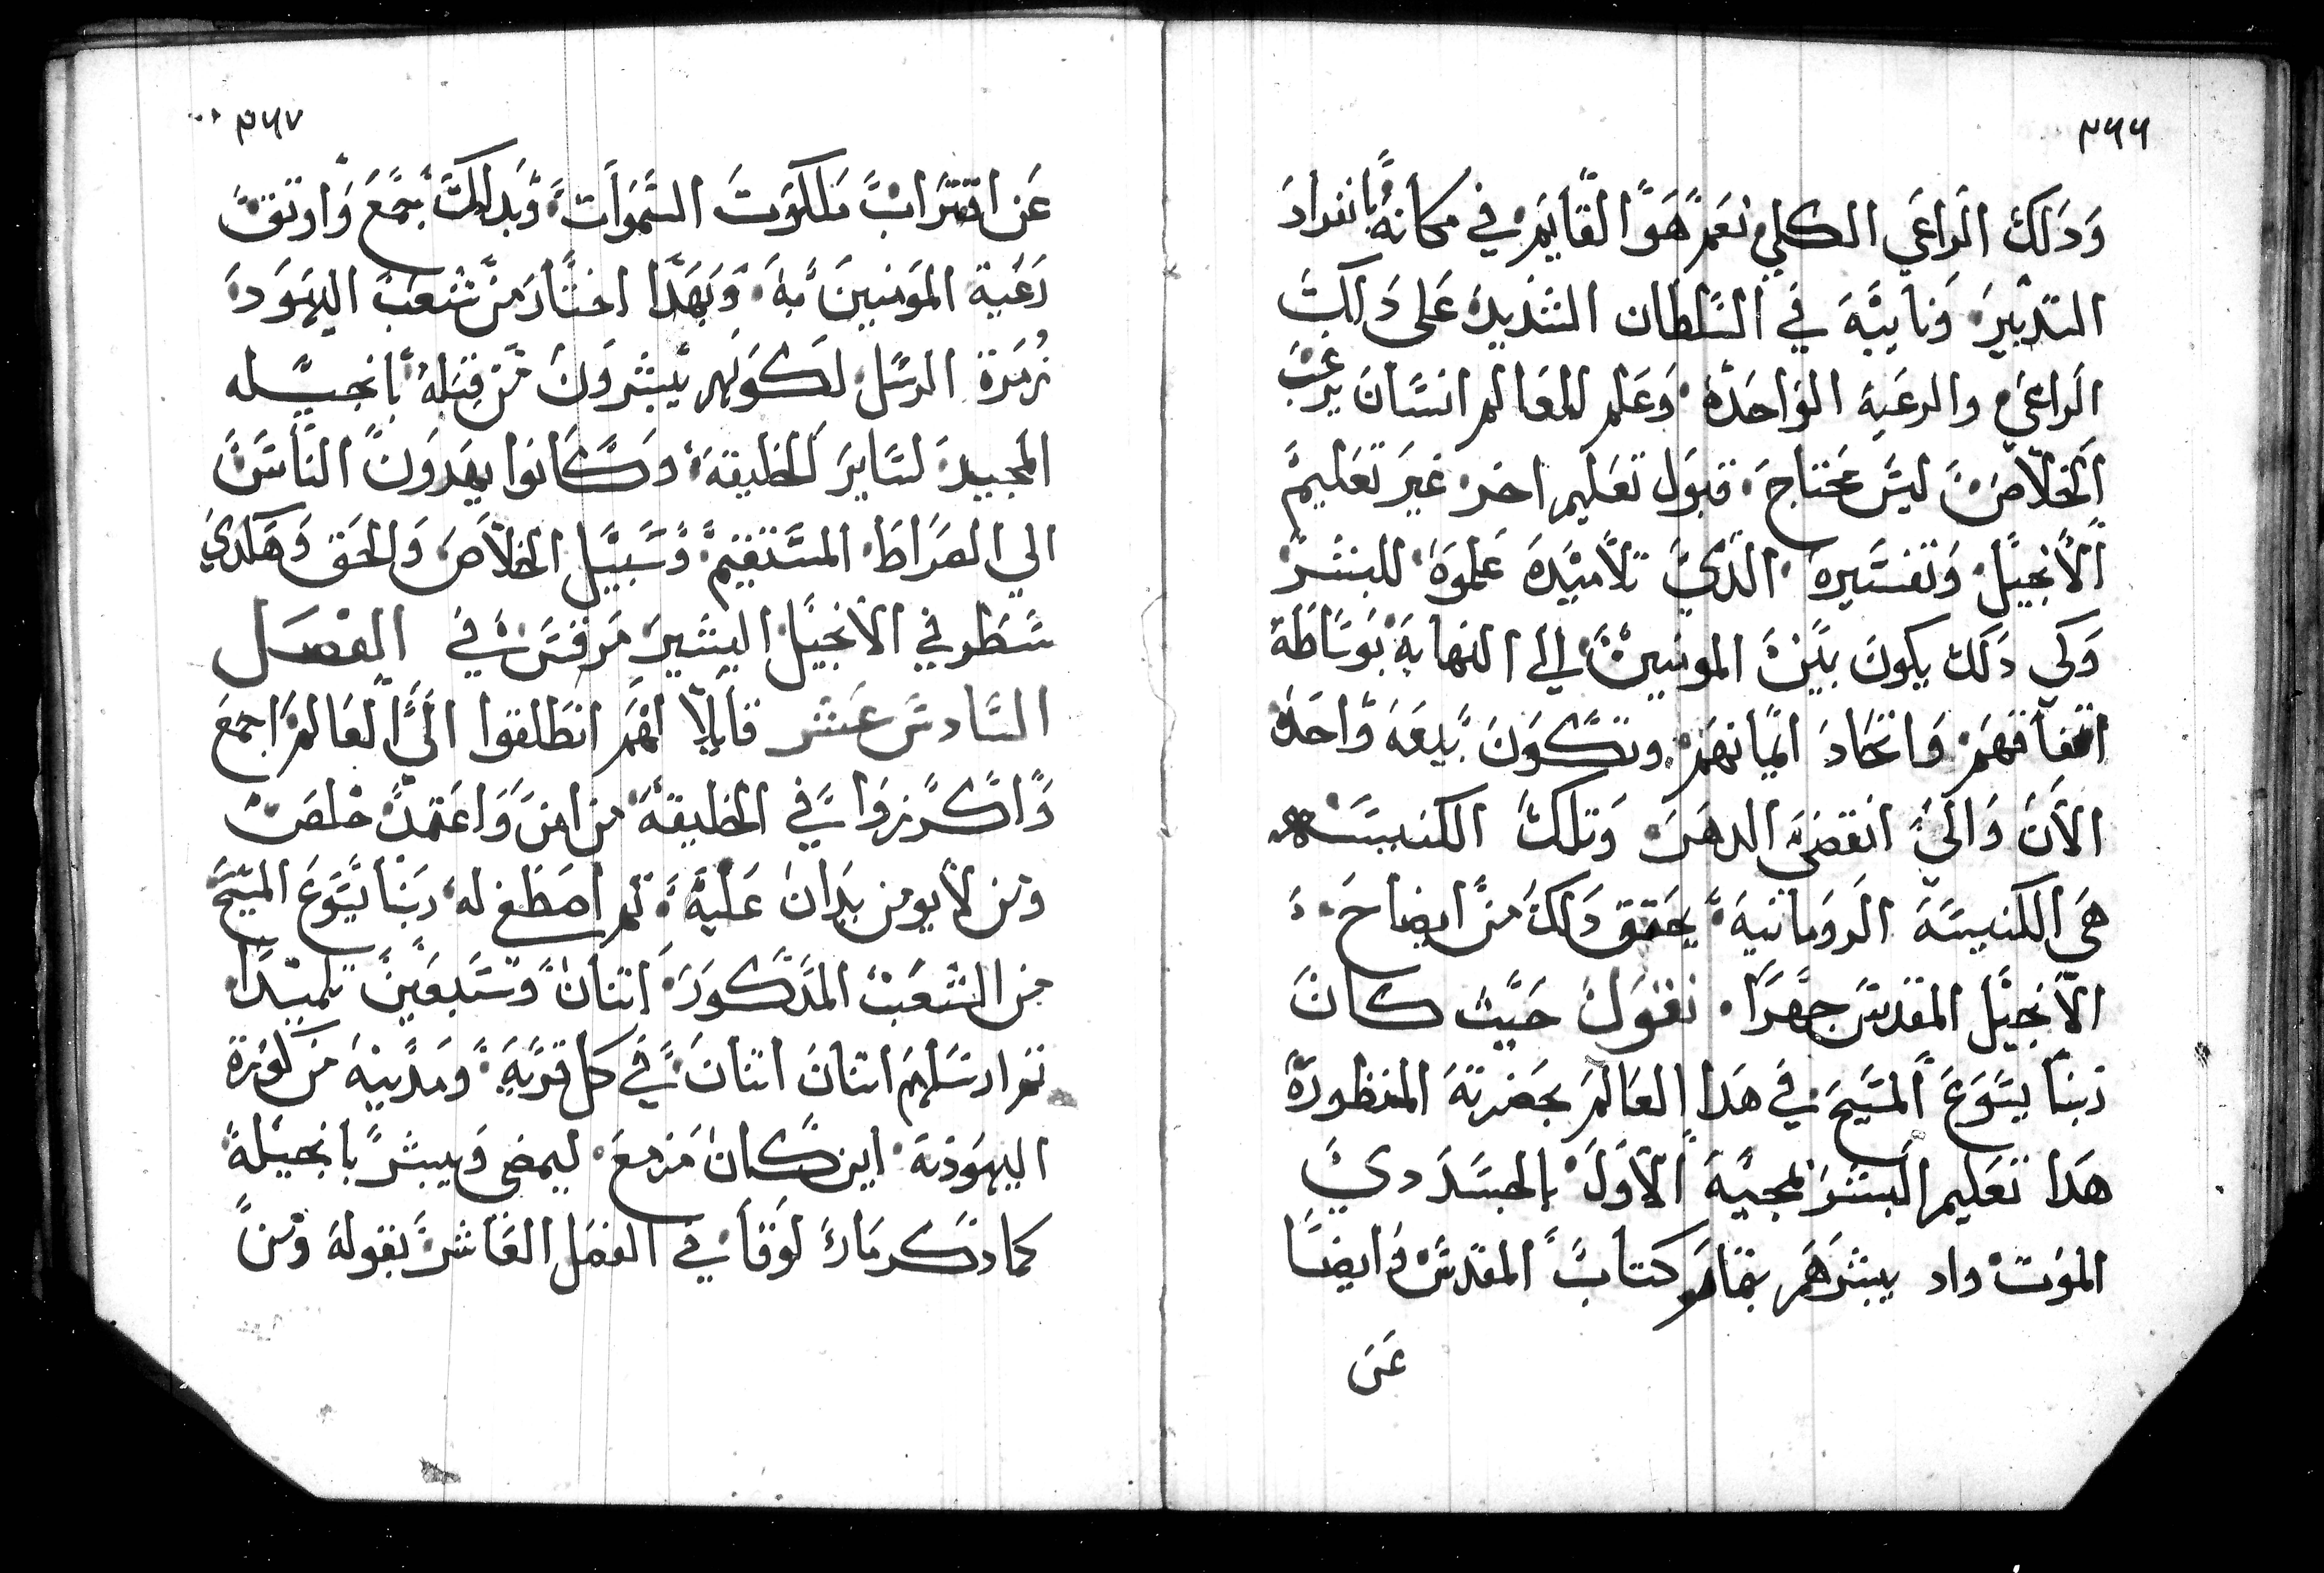 ٣٦٦
وَدَلك الراعَي الكلي نعَم هَوَ القايَم في مكانهُ بانفرادَ
التدبيرَ وَنايبَهَ في السَلطان الشديدَ عَلى دَلكَ
الراعَي والرعَيه الوَاحدَة وَعَلم للعَالم انسَانَ يرغَبَ
الخلاصَ ليسَ محَتاجَ قبوَل تعَليم اخرَ غيرَ تعَليمَ
الانجيلَ وَتفسَيرهَ الدَي تلاميَدهَ عَلموَهَ للبشرَ
وَكي دَلك يكونَ بيَنَ المومنيَنَ الي النهايهَ بوَسَاطَة
اتفاقهَمَ وَاتحَادَ ايمانهَمَ وتكَوَنَ بيعَهَ وَاحدَة
الاَنَ وَالَيَ انقضىَ الدهَرَ وَتلكَ الكنيسَه
هَي الكنيسَةَ الروَمانيهَ يحَقق دَلكَ منَ ايضاحَ
الانجيَل المقدسَ جهَرَا نقوَلَ حَيَث كانَ
ربناَ يسَوَعَ المسَيحَ في هَدا العَالمَ بحَضرتهَ المنظورَة
هَدا تعَليم البشرَ بمجيَهَ الاوَلَ بالجسَدَ دي
الموَتَ واد يبشرَهَم بمَاهَو كتابَ المقدسَ وَايضَا
عَن
٣٦٧
عَن اقترابَ مَلكوَتَ السَموَاتَ وَبدَلكَ جمعَ وَاوتقَ
رَعَية المومنيَنَ بهَ وَبهَدَا اختَارَ منَ شعَبَ اليهوَدَ
زُمرَة الرسَل لكوَنهم يَبشروَنَ مَن قبَلهَ بانجيَله
المجيدَ لسَايرَ الخليقهَ وَكَانوا يهَدوَنَ الناسَ
الي الصَراطَ المسَتقيمَ وَسَبيَل الخلاَصَ وَالحَق وَهَكدي
سَطر في الانجيَل البشيرَ مَرقسَ في الفصَل
السَادسَ عَشر قايلاَ لهَمَ انطَلقوا الىَ العَالمَ اجمعَ
وَاكرَزوَا في الخليقهَ من امنَ وَاعَتمدَ خلصَ
ومن لاَ يومن يدَانَ عَليهَ تم اصَطفي لهَ ربنَا يسَوَعَ المسَيحَ
من الشعَبَ المدَكورَ اتنانَ وَسَبعَينَ تلميَدَا
تم ارسَلهم اتنانَ اتنانَ في كل قريَهَ وَمدَينهَ مَن كورَة
اليهوَديَة اين كَانَ مَزمعَ ليمضى وَيبشرَ بانجيَلهَ
كما دَكر مَارَ لوَقاَ في الفصَل العَاشرَ بقوله وَمنَ